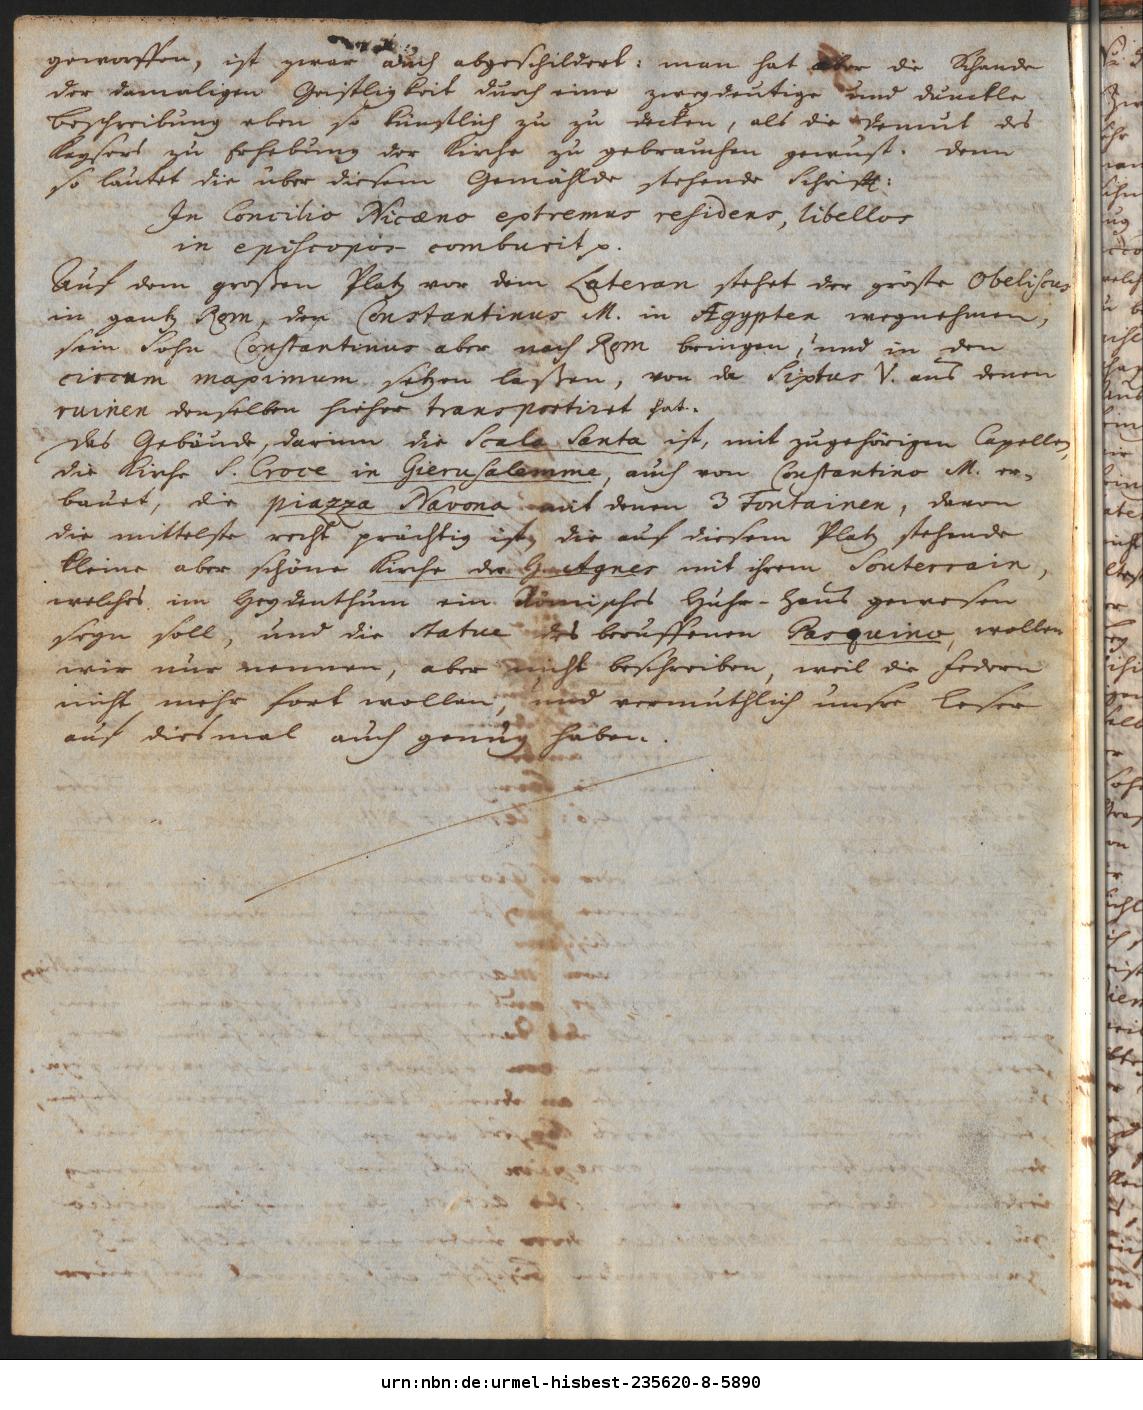 geworffen, ist zwar auch abgeschildert: man hat aber die Schande
der damaligen Geistligkeit durch eine zweydeutige und dunckle
beschreibung eben so künstlich zu zu decken, als die Demut des
Kaysers zu Erhebung der Kirche zu gebrauchen gewust. denn
so lautet die über diesem Gemählde stehende Schrifft:
In Concilio Nicæno extremus residens, libellos
in episcopos comburit p.
Auf dem großen Platz vor dem Lateran stehet der gröste Obeliscus
in gantz Rom, den Constantinus M. in Ægypten wegnehmen,
sein Sohn Constantinus aber nach Rom bringen, und in den
circum maximum setzen laßen, von da Sixtus V. aus denen
ruinen denselben hieher transportiret hat.
Das Gebäude, darinn die Scala Santa ist, mit zugehörigen Capellen,
die Kirche S. Croce in Gierusalemme, auch von Constantino M. er-
bauet, die piazza Navona mit denen 3 Fontainen, davon
die mittelste recht prächtig ist, die auf diesem Platz stehende
kleine aber schöne Kirche der Agnes mit ihrem Souterrain,
welches im Heydenthum ein Römisches Huhr-Haus gewesen
seyn soll, und die statue des beruffenen Pasquino, wollen
wir nur nennen, aber nicht beschreiben, weil die Federn
nicht mehr fort wollen, und vermuthlich unsre Leser
auf diesmal auch genug haben.
urn:nbn:de:urmel-hisbest-235620-8-5890